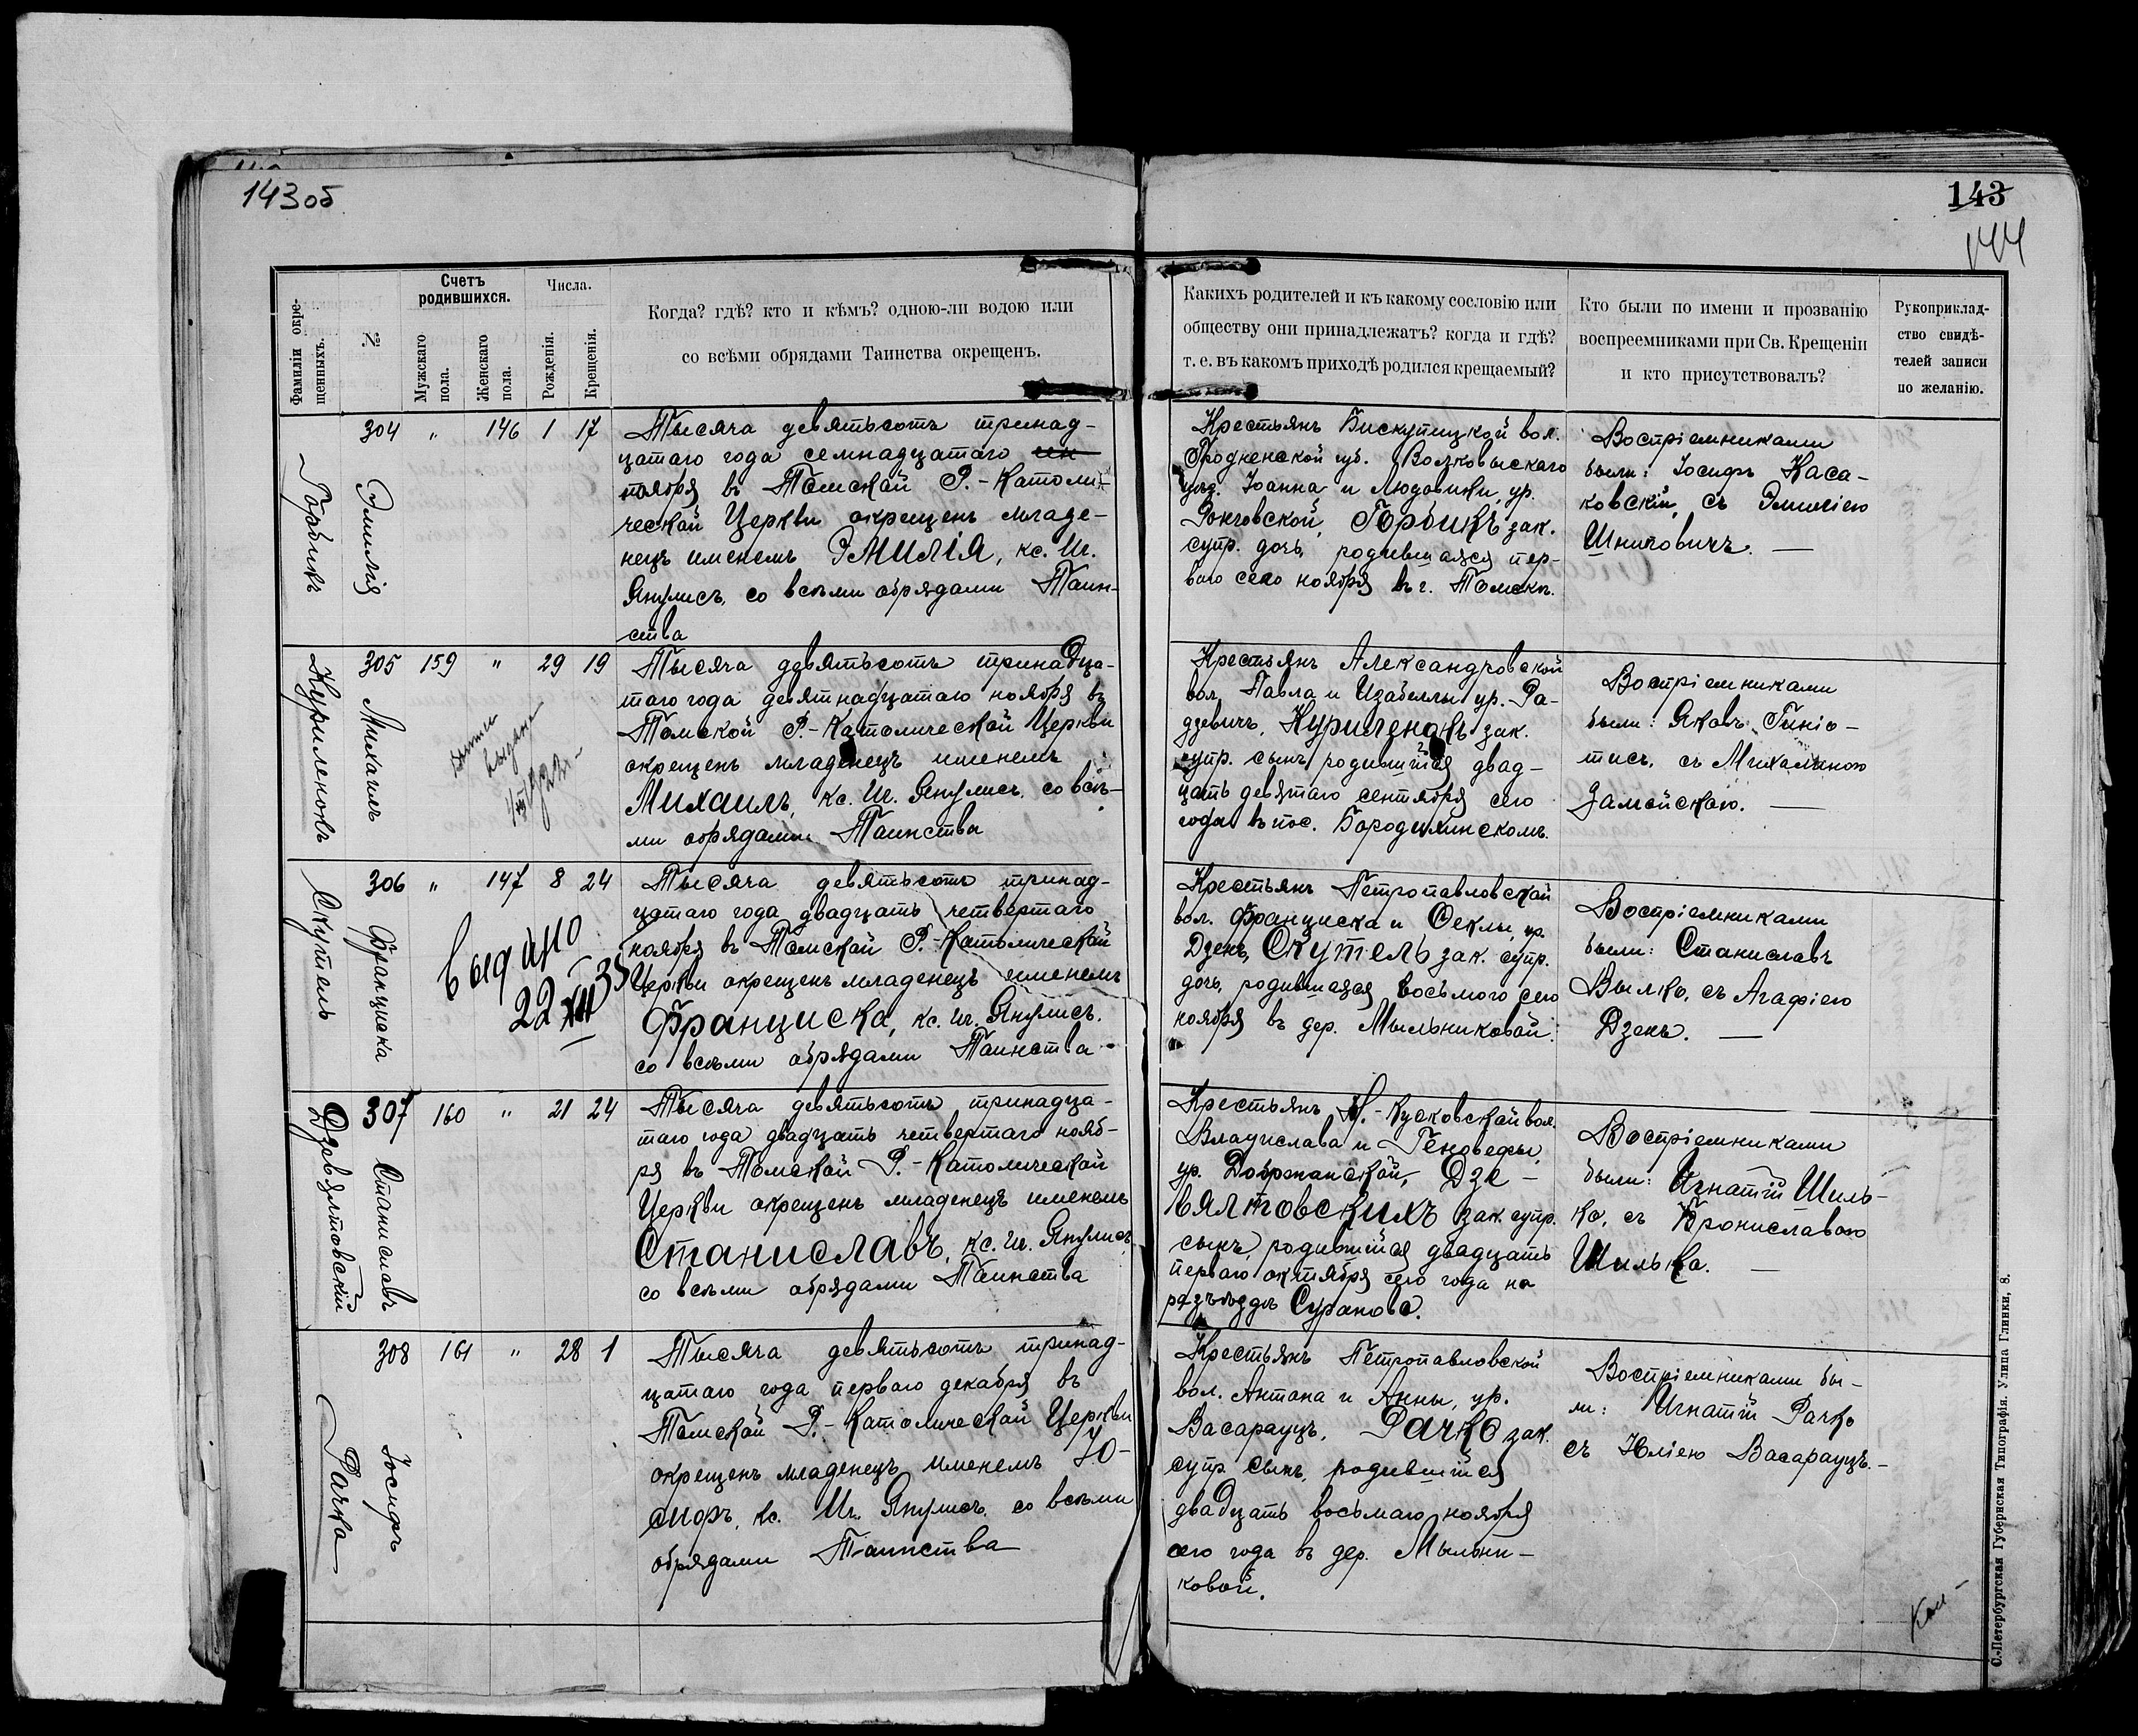 143об
143
144
Фамиліи окре-
щенныхъ.
№
Счетъ
родившихся.
Мужскаго
пола.
Женскаго
пола.
Числа.
Рожденія.
Крещенія.
Когда? гдѣ? кто и кѣмъ? одною-ли водою или
со всѣми обрядами Таинства окрещенъ.
Какихъ родителей и къ какому сословію или
обществу они принадлежатъ? когда и гдѣ?
т. е. въ какомъ приходѣ родился крещаемый?
Кто были по имени и прозванію
воспреемниками при Св. Крещеніи
и кто присутствовалъ?
Рукоприклад-
ство свидѣ-
телей записи
по желанію.
Горбикъ
304 " 146 1 17
Эмилія
Тысяча девятьсотъ тринад-
цатаго года семнадцатаго
ноября въ Томской Р.-Католи-
ческой Церкви окрещенъ младе-
нецъ именемъ Эмилія, кс. Иг.
Янулисъ, со всѣми обрядами Таин-
ства
Крестьянъ Бискупицкой вол.
Гродненской губ. Волковыскаго
уѣзд. Іоанна и Людовики, ур.
Горбикъ зак.
супр. дочь, родившаяся пер-
ваго сего ноября въ г. Томскѣ.
Воспріемниками
были: Іосифъ Каса-
ковскій, съ Эмиліею
Шниповичъ. —
Куриленокъ
305 159 " 29 19
Михаилъ
выдана
1922 г.
Тысяча девятьсотъ тринадца-
таго года девятнадцатаго ноября въ
Томской Р.-Католической Церкви
окрещенъ младенецъ именемъ
Михаилъ, кс. Иг. Янулисъ, со всѣ-
ми обрядами Таинства
Крестьянъ Александровской
вол. Павла и Изабеллы ур. Ра-
дзевичъ, Куриленокъ зак.
супр. сынъ, родившійся двад-
цать девятаго сентября сего
года въ пос. Бородихинскомъ.
Воспріемниками
были: Яковъ Гинio-
тисъ, съ Михалиною
Замойскою. —
Скутель
306 " 147 8 24
Франциска
Выдано
22 XII 35
Тысяча девятьсотъ тринад-
цатаго года двадцать четвертаго
ноября въ Томской Р.-Католической
Церкви окрещенъ младенецъ именемъ
Франциска, кс. Иг. Янулисъ.
со всѣми обрядами Таинства
Крестьянъ Петропавловской
вол. Франциска и Ѳеклы, ур.
Дзенъ, Скутель зак. супр.
дочь, родившаяся восьмого сего
ноября въ дер. Мыльниковой.
Воспріемниками
были: Станиславъ
Вылко, съ Агафіею
Дзенъ. —
Дзевялтовскій
307 160 " 21 24
Станиславъ
Тысяча девятьсотъ тринадца-
таго года двадцать четвертаго нояб-
ря въ Томской Р.-Католической
Церкви окрещенъ младенецъ именемъ
Станиславъ, кс. Иг. Янулисъ,
со всѣми обрядами Таинства
Крестьянъ Н.-Кусковской вол.
Владислава и Геновефы,
ур. Добржанской, Дзе-
вялтовскихъ зак. супр.
сынъ, родившійся двадцать
перваго октября сего года на
разъѣздѣ Сураново.
Воспріемниками
были: Игнатій Шиль-
ко, съ Брониславою
Шилько. —
Рачко
308 161 " 28 1
Іосифъ
Тысяча девятьсотъ тринад-
цатаго года перваго декабря въ
Томской Р.-Католической Церкви
окрещенъ младенецъ именемъ Іо-
сифъ, кс. Иг. Янулисъ. со всѣми
обрядами Таинства
Крестьянъ Петропавловской
вол. Антона и Анны, ур.
Васарауцъ, Рачко зак.
супр. сынъ, родившійся
двадцать восьмаго ноября
сего года въ дер. Мыльни-
ковой.
Воспріемниками бы-
ли: Игнатій Рачко
съ Юліею Васарауцъ. —
С.-Петербургская Губернская Типографія. Улица Глинки, 8.